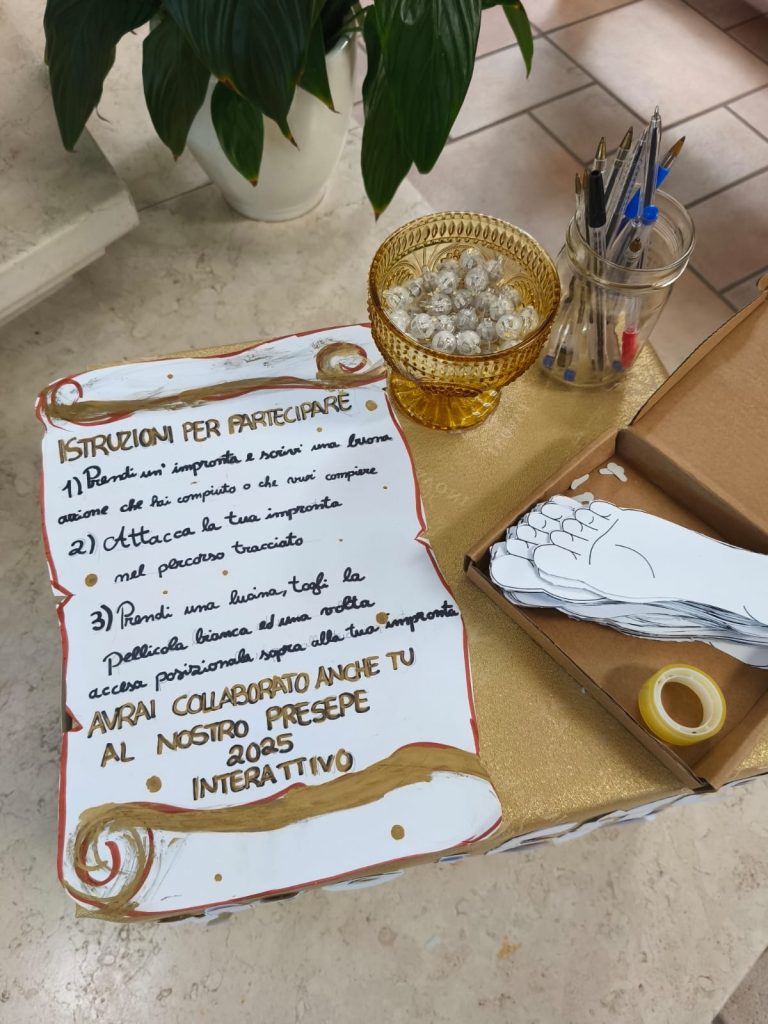 ISTRUZIONI PER PARTECIPARE
1) Prendi un'impronta e scrivi una buona
azione che hai compiuto o che vuoi compiere
2) Attacca la tua impronta
nel percorso tracciato
3) Prendi una lucina, togli la
Pellicola bianca ed una volta
accesa posizionala sopra alla tua impronta
AVRAI COLLABORATO ANCHE TU
AL NOSTRO PRESEPE
2025
INTERATTIVO